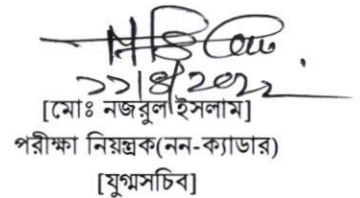 ১১/৪/২০২২
[মোঃ নজরুল ইসলাম]
পরীক্ষা নিয়ন্ত্রক(নন-ক্যাডার)
[যুগ্মসচিব]